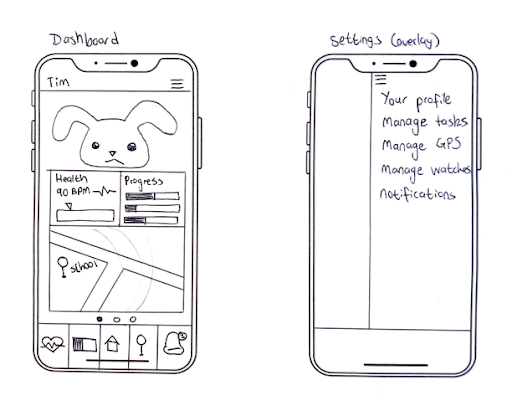 Dashboard
Tim
Health
90 BPM
Progress
school
Settings (overlay)
Your profile
Manage tasks
Manage GPS
Manage watches
notifications